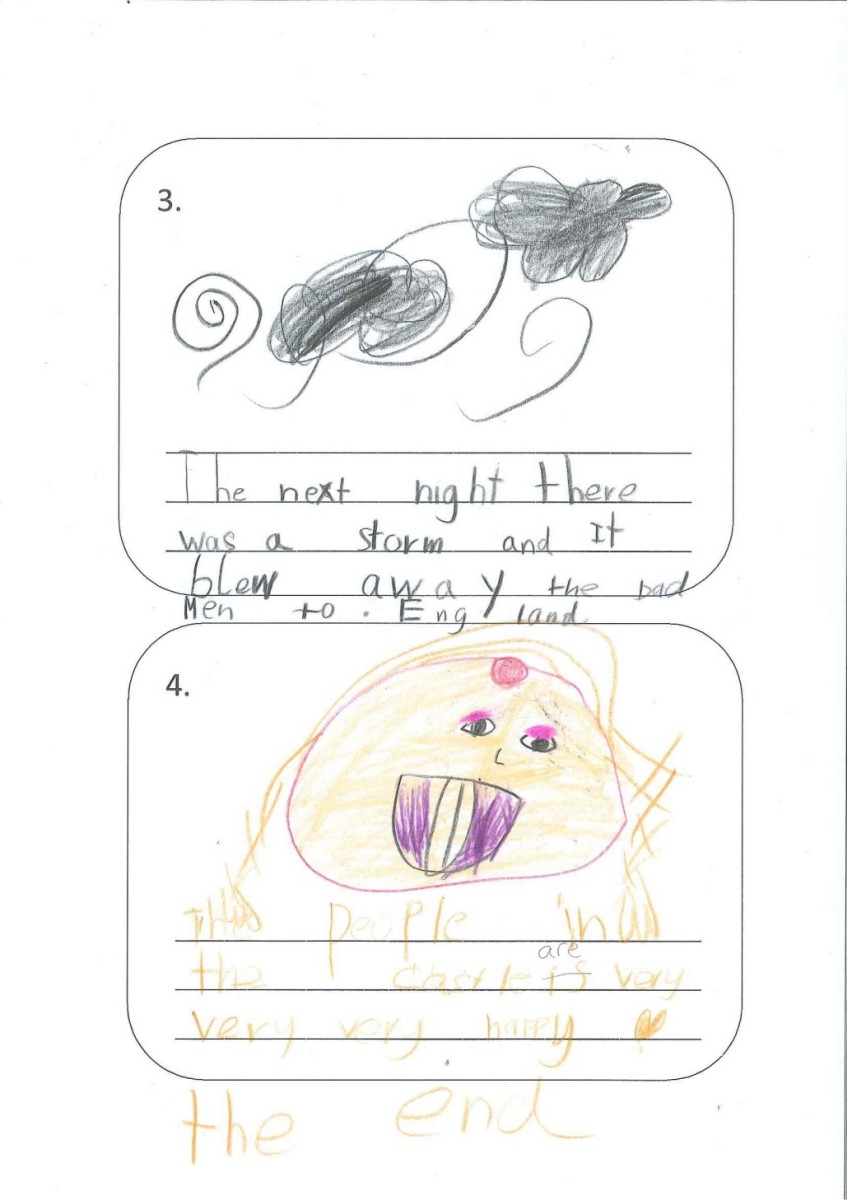 3.
The next night there
was a storm and It
blew away the bad
Men to . England
4.
The people in
are
the castle is very
very very happy
the end